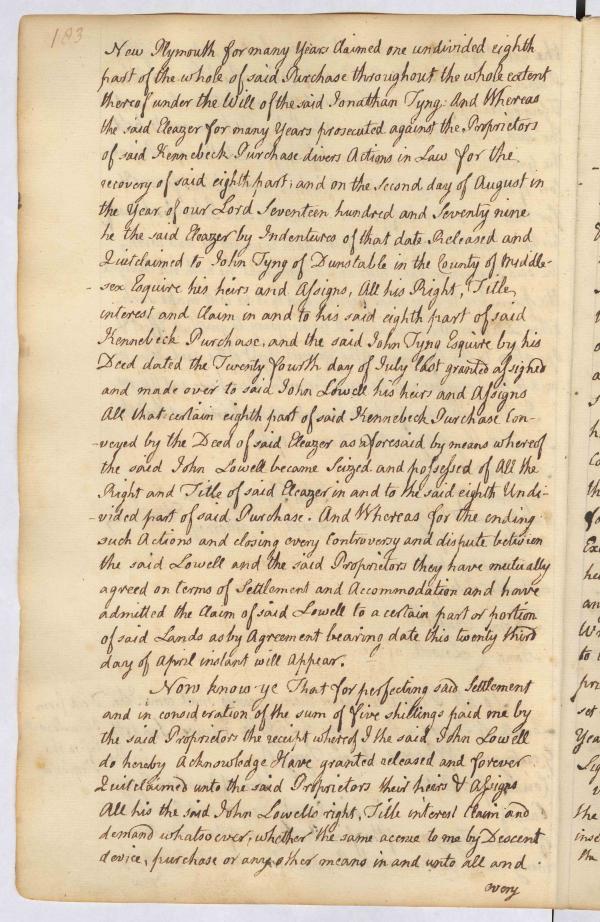 183
New Plymouth for many Years Claimed one undivided eighth
part of the whole of said Purchase throughout the whole extent
thereof under the Will of the said Jonathan Tyng: And Whereas
the said Eleazer for many Years prosecuted against the Proprietors
of said Kennebeck Purchase divers Actions in Law for the
recovery of said eighth part; and on the Second day of August in
the Year of our Lord Seventeen hundred and Seventy nine
he the said Eleazer by Indentures of that date Released and
Quitclaimed to John Tyng of Dunstable in the County of Middle-
-sex Esquire his heirs and Assigns, All his Right, Title,
interest and Claim in and to his said eighth part of said
Kennebeck Purchase, and the said John Tyng Esquire by his
Deed dated the Twenty fourth day of July last granted assigned
and made over to said John Lowell his heirs and Assigns
All that certain eighth part of said Kennebeck Purchase Con-
-veyed by the Deed of said Eleazer as aforesaid by means whereof
the said John Lowell became Seized and possessed of All the
Right and Title of said Eleazer in and to the said eighth Undi-
-vided part of said Purchase. And Whereas for the ending
such Actions and closing every Controversy and dispute between
the said Lowell and the said Proprietors they have mutually
agreed on terms of Settlement and Accommodation and have
admitted the Claim of said Lowell to a certain part or portion
of said Lands as by Agreement bearing date this twenty third
day of April instant will Appear.
Now know ye That for perfecting said Settlement
and in consideration of the sum of five shillings paid me by
the said Proprietors the receipt whereof I the said John Lowell
do hereby Acknowledge Have granted released and forever
Quitclaimed unto the said Proprietors their heirs & Assigns
All his the said John Lowells right, Title interest Claim and
demand whatsoever, whether the same accrue to me by Descent
device, purchase or any other means in and unto all and
every